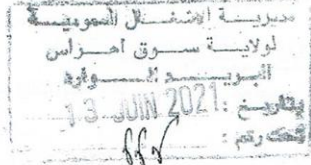 مديرية الاشغال العمومية
لولاية سوق اهراس
البريد الوارد
بتاريخ : 13 JUIN 2021
تحت رقم :